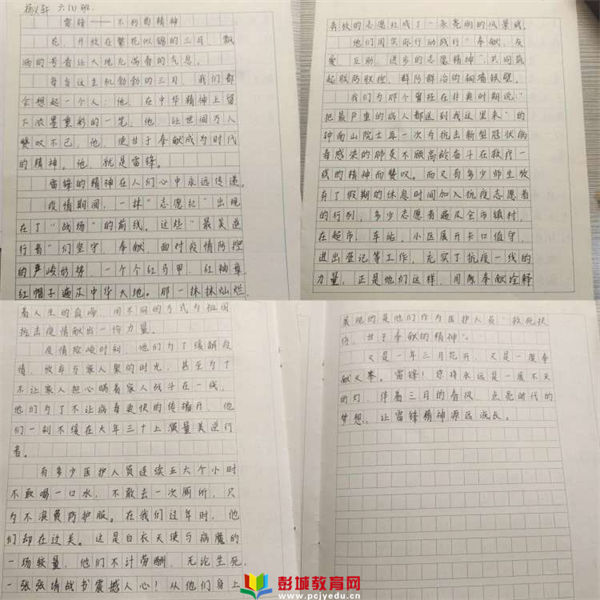 六(1)班
雷锋——不朽的精神
花，开放在繁花似锦的三月，飘
荡的香卷让大地充满春的气息。
每当这生机勃勃的三月，我们都
会想起一个人：他，在中华精神上留
下浓墨重彩的一笔，他，让世间万人
赞叹不已，他，使甘于奉献成为时代
的精神。他，就是雷锋。
雷锋的精神在人们心中永远传递。
疫情期间，一抹“志愿红”出现
在了“战场”的前线。这些“最美逆
行者”们坚守、奉献，面对疫情防控
的严峻形势，一个个红马甲、红袖章、
红帽子遍及中华大地。那一抹抹灿烂
奔放的志愿红成了一条亮丽的风景线。
他们用实际行动践行“奉献、友
爱、互助、进步的志愿精神”，共同筑
起联防联控，群防群治的铜墙铁壁。
我们为那个曾经在非典时期说“
把最严重的病人都送到我这里来”的
钟南山院士再一次为抗击新型冠状病
毒感染的肺炎不顾高龄奋斗在救疗一
线的精神而赞叹。而又有多少师生放
弃了假期的休息时间加入抗疫志愿者
的行列，多少志愿者遍及全市镇村，
在超市、车站、小区展开卡口值守，
进出登记等工作，充实了抗疫一线的
力量，正是他们这样，用默默奉献诠释
着人生的真谛，用不同的方式为祖国
抗击疫情献出一份力量。
疫情险峻时刻，他们为了缓解疫
情，放弃与家人聚的时光，甚至为了
不让家人担心瞒着家人战斗在一线，
他们为了不让病毒更快的传播开，他
们一刻不缓在大年三十上演最美逆行
者。
有多少医护人员连续五六个小时
不敢喝一口水，不敢去一次厕所，只
为不浪费防护服。在我们过年时，他
们却在过关。这是白衣天使与病魔的
一场较量，他们不计劳酬，无论生死，
一张张请战书震撼人心！从他们身上
美现的是他们作为医护人员“救死扶
伤，甘于奉献的精神”。
又是一年三月花开，又是一度奉
献火拳。雷锋！您将永远是一座不灭
的灯，伴着三月的春风，点亮时代的
梦想，让雷锋精神源远流长。
彭城教育网
www.pcjyedu.cn